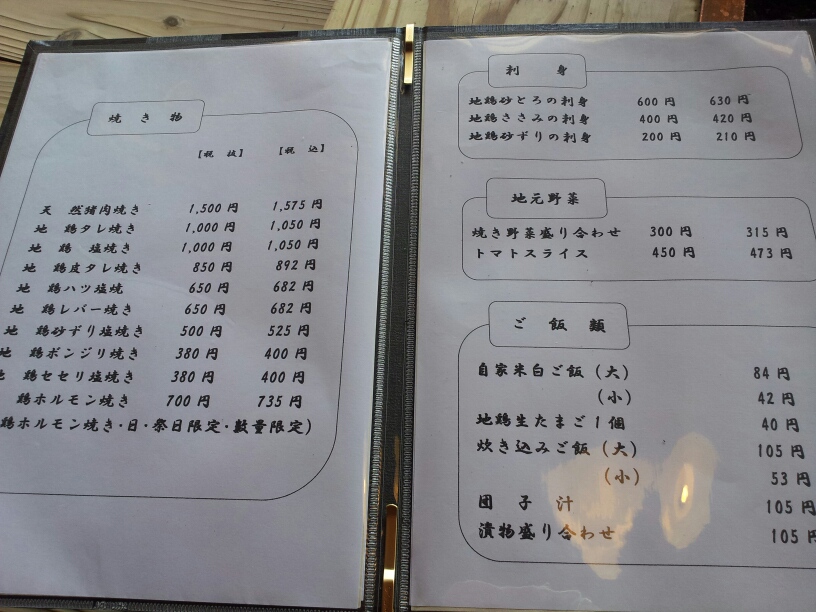 焼き物
【税抜】 【税込】
天 然猪肉焼き 1,500円 1,575円
地 鶏タレ焼き 1,000円 1,050円
地 鶏 塩焼き 1,000円 1,050円
地 鶏皮タレ焼き 850円 892円
地 鶏ハツ塩焼 650円 682円
地 鶏レバー焼き 650円 682円
地 鶏砂ずり塩焼き 500円 525円
地 鶏ボンジリ焼き 380円 400円
地 鶏セセリ塩焼き 380円 400円
鶏ホルモン焼き 700円 735円
鶏ホルモン焼き・日・祭日限定・数量限定)
刺 身
地鶏砂とろの刺身 600円 630円
地鶏ささみの刺身 400円 420円
地鶏砂ずりの刺身 200円 210円
地元野菜
焼き野菜盛り合わせ 300円 315円
トマトスライス 450円 473円
ご飯類
自家米白ご飯(大) 84円
(小) 42円
地鶏生たまご1個 40円
炊き込みご飯(大) 105円
(小) 53円
団 子 汁 105円
漬物盛り合わせ 105円